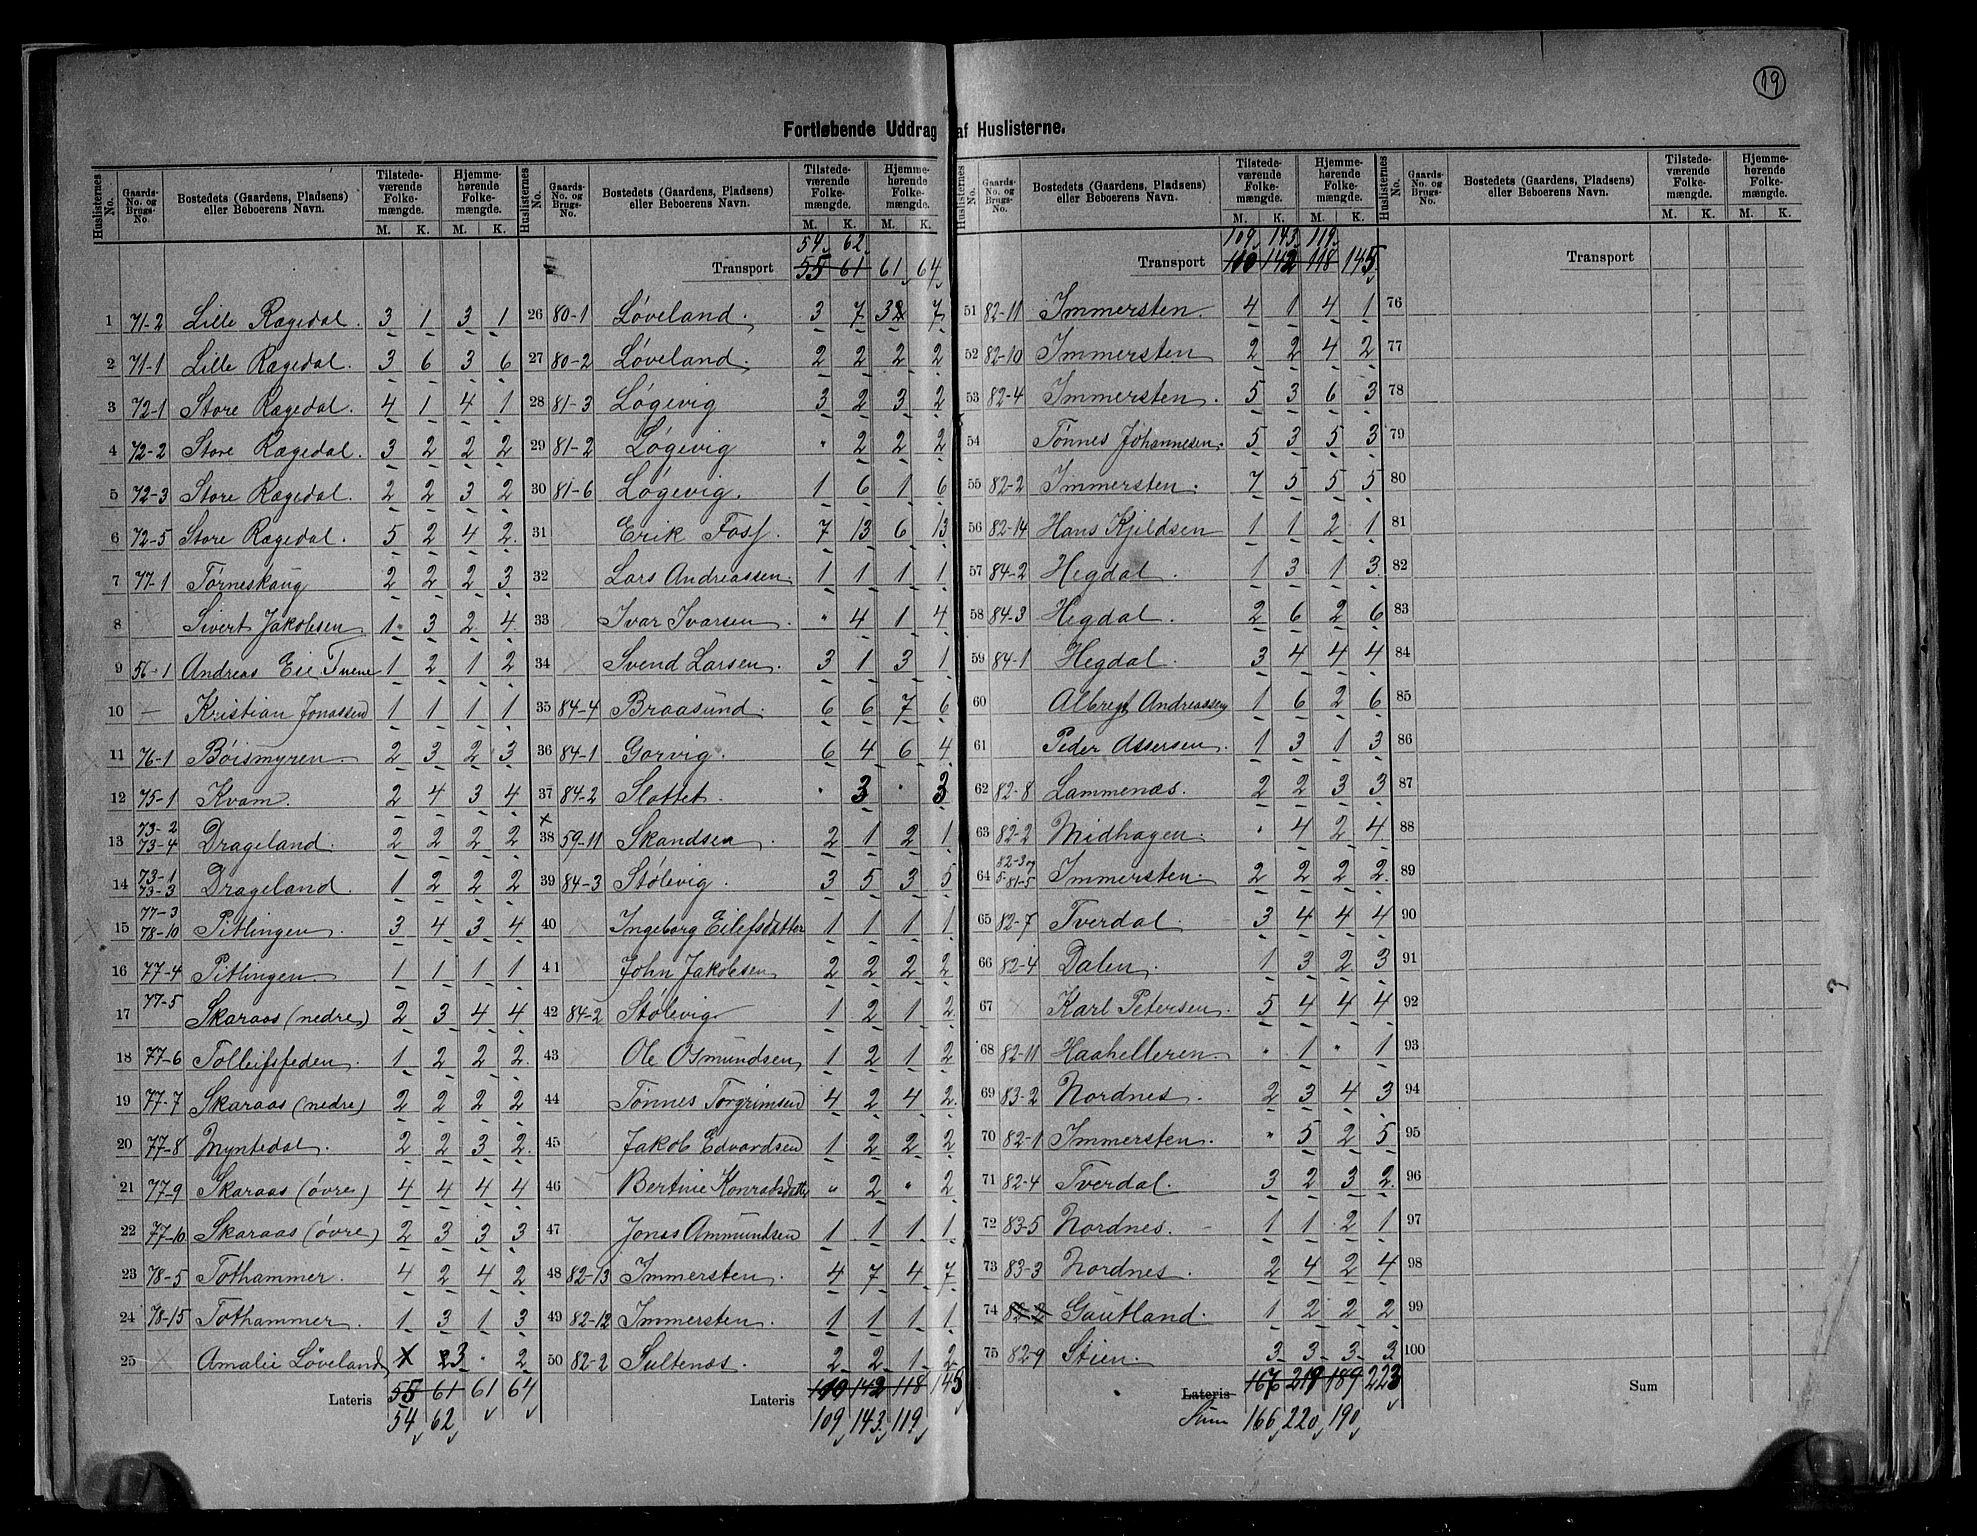 19
Fortløbende Uddrag af Huslisterne.
Huslisternes No. Gaards-No. og Brugs-No. Bostedets (Gaardens, Pladsens) eller Beboerens Navn. Tilstedeværende Folkemængde. M. K. Hjemmehørende Folkemængde. M. K.
1 71-2 Lille Rægedal. 3 1 3 1
2 71-1 Lille Rægedal. 3 6 3 6
3 72-1 Store Rægedal. 4 1 4 1
4 72-2 Store Rægedal. 3 2 2 2
5 72-3 Store Rægedal. 2 2 3 2
6 72-5 Store Rægedal. 5 2 4 2
7 77-1 Tørneskaug 2 2 2 3
8 Sivert Jakobsen 1 3 2 4
9 56-1 Andreas Eie Tuene 1 2 1 2
10 — Kristian Jonassen 1 1 1 1
11 76-1 Bøismyren 2 3 2 3
12 75-1 Kvam. 2 4 3 4
13 73-2 73-4 Drageland. 2 2 2 2
14 73-1 73-3 Drageland. 1 2 2 2
15 77-3 78-10 Pitlingen. 3 4 3 4
16 77-4 Pitlingen 1 1 1 1
17 77-5 Skaraas (nedre) 2 3 4 4
18 77-6 Tolleifsfeden. 1 2 2 2
19 77-7 Skaraas (nedre) 2 2 2 2
20 77-8 Myntedal. 2 2 3 2
21 77-9 Skaraas (øvre) 4 4 4 4
22 77-10 Skaraas (øvre) 2 3 3 3
23 78-5 Tothammer. 4 2 4 2
24 78-15 Tothammer 1 3 1 3
25 Amalie Løveland X 3 " 2
Lateris 55 61 61 64
54 62
Huslisternes No. Gaards-No. og Brugs-No. Bostedets (Gaardens, Pladsens) eller Beboerens Navn. Tilstedeværende Folkemængde. M. K. Hjemmehørende Folkemængde. M. K.
54 62
Transport 55 61 61 64
26 80-1 Løveland. 3 7 3 7
27 80-2 Løveland. 2 2 2 2
28 81-3 Løgevig 3 2 3 2
29 81-2 Løgevig " 2 2 2
30 81-6 Løgevig. 1 6 1 6
31 Erik Fosf. 7 13 6 13
32 Lars Andreassen. 1 1 1 1
33 Ivar Ivarsen " 4 1 4
34 Svend Larsen. 3 1 3 1
35 84-4 Braasund. 6 6 7 6
36 84-1 Gorvig. 6 4 6 4
37 84-2 Slottet. " 3 " 3
x
38 59-11 Skandsen 2 1 2 1
39 84-3 Stølevig. 3 5 3 5
40 Ingeborg Eilefsdatter 1 1 1 1
41 John Jakobsen 2 2 2 2
42 84-2 Stølevig 1 2 1 2
43 Ole Osmundsen 1 2 1 2
44 Tønnes Torgrimsen 4 2 4 2
45 Jakob Edvardsen 1 2 2 2
46 Bertine Konradsdatter " 2 " 2
47 Jonas Ammundsen 1 1 1 1
48 82-13 Immersten. 4 7 4 7
49 82-12 Immersten. 1 1 1 1
50 82-2 Sultenæs. 2 2 1 2
Lateris 110 142 118 145
109 143 119
Huslisternes No. Gaards-No. og Brugs-No. Bostedets (Gaardens, Pladsens) eller Beboerens Navn. Tilstedeværende Folkemængde. M. K. Hjemmehørende Folkemængde. M. K.
109 143 119
Transport 110 142 118 145
51 82-11 Immersten. 4 1 4 1
52 82-10 Immersten 2 2 4 2
53 82-4 Immersten. 5 3 6 3
54 Tønnes Johannesen. 5 3 5 3
55 82-2 Immersten. 7 5 5 5
56 82-14 Hans Kjeldsen 1 1 2 1
57 84-2 Hegdal. 1 3 1 3
58 84-3 Hegdal. 2 6 2 6
59 84-1 Hegdal 3 4 4 4
60 Albregt Andreassen 1 6 2 6
61 Peder Assersen. 1 3 1 3
62 82-8 Lammenæs. 2 2 3 3
63 82-2 Midhagen. " 4 2 4
64 82-3 og 5 81-5 Immersten. 2 2 2 2
65 82-7 Tverdal. 3 4 4 4
66 82-4 Dalen. 1 3 2 3
67 Karl Petersen. 5 4 4 4
68 82-11 Haahelleren. " 1 " 1
69 83-2 Nordnes. 2 3 4 3
70 82-1 Immersten. " 5 2 5
71 82-4 Tverdal. 3 2 3 2
72 83-5 Nordnes. 1 1 2 1
73 83-3 Nordnes. 2 4 2 4
74 Gautland. 1 2 2 2
75 82-9 Stien. 3 3 3 3
Lateris 167 219 189 223
Sum 166 220 190
Huslisternes No. Gaards-No. og Brugs-No. Bostedets (Gaardens, Pladsens) eller Beboerens Navn. Tilstedeværende Folkemængde. M. K. Hjemmehørende Folkemængde. M. K.
Transport
76
77
78
79
80
81
82
83
84
85
86
87
88
89
90
91
92
93
94
95
96
97
98
99
100
Sum